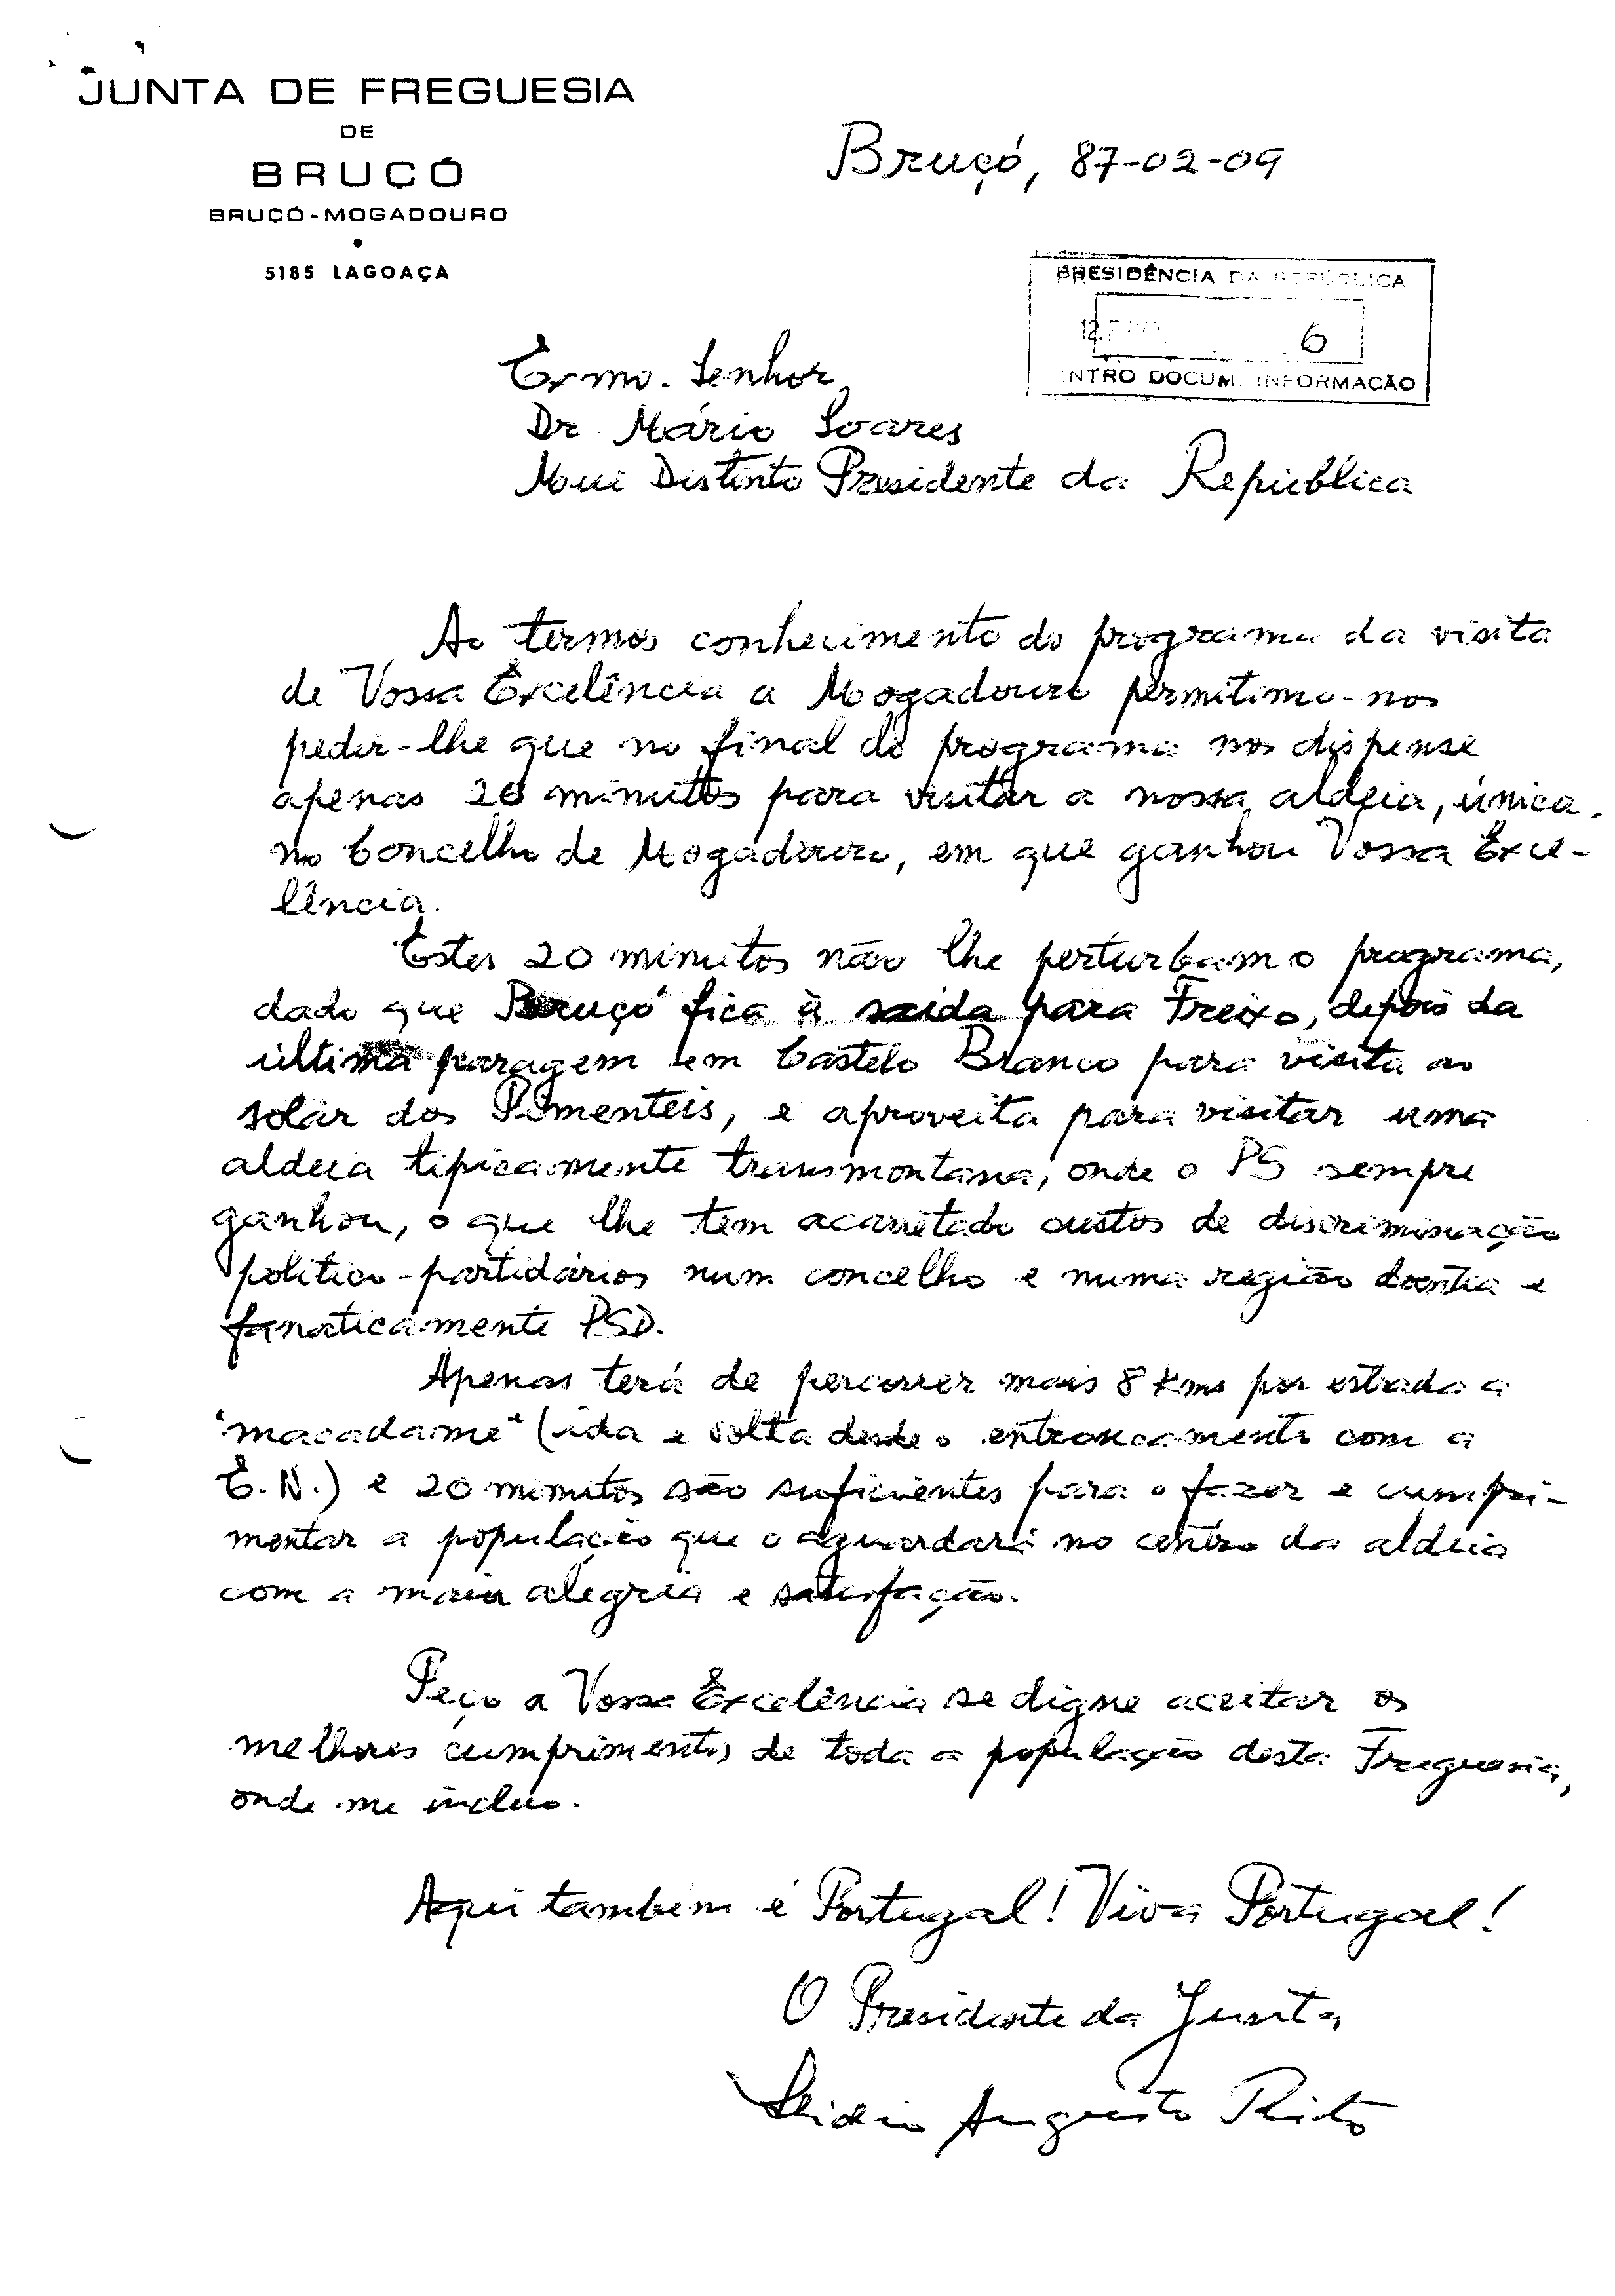 JUNTA DE FREGUESIA
DE
BRUÇÓ
BRUÇÓ-MOGADOURO
5185 LAGOAÇA
Bruçó, 87-02-09
PRESIDÊNCIA DA REPÚBLICA
12 6
NTRO DOCUM. INFORMAÇÃO
Exmo. Senhor,
Dr. Mário Soares
Mui Distinto Presidente da República
Ao termos conhecimento do programa da visita
de Vossa Excelência a Mogadouro permitimo-nos
pedir-lhe que no final do programa nos dispense
apenas 20 minutos para visitar a nossa aldeia, única
no Concelho de Mogadouro, em que ganhou Vossa Exce-
lência.
Estes 20 minutos não lhe perturbam o programa,
dado que Bruçó fica à saída para Freixo, depois da
última paragem em Castelo Branco para visita ao
solar dos Pimenteis, e aproveita para visitar uma
aldeia tipicamente transmontana, onde o PS sempre
ganhou, o que lhe tem acarretado custos de discriminação
politico-partidários num concelho e numa região doentia e
fanaticamente PSD.
Apenas terá de percorrer mais 8 kms por estrada a
"macadame" (ida e volta desde o entroncamento com a
E.N.) e 20 minutos são suficientes para o fazer e cumpri-
mentar a população que o aguardará no centro da aldeia
com a maior alegria e satisfação.
Peço a Vossa Excelência se digne aceitar os
melhores cumprimentos de toda a população desta Freguesia,
onde me incluo.
Aqui também é Portugal! Viva Portugal!
O Presidente da Junta
Augusto